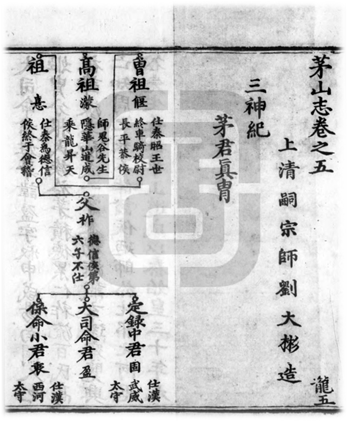 茅山志卷之五
上清嗣宗師劉大彬造
龍五
三神紀
茅君眞胄
曾祖偃
仕秦昭王世
終車騎校尉
長平恭侯
高祖濛
師鬼谷先生
隱華山道成
乘龍昇天
祖憙
仕秦爲德信
侯終于會稽
父祚
信侯第
六子不仕
定錄中君固
仕漢
武威
太守
大司命君盈
保命小君衷
仕漢
西河
太守